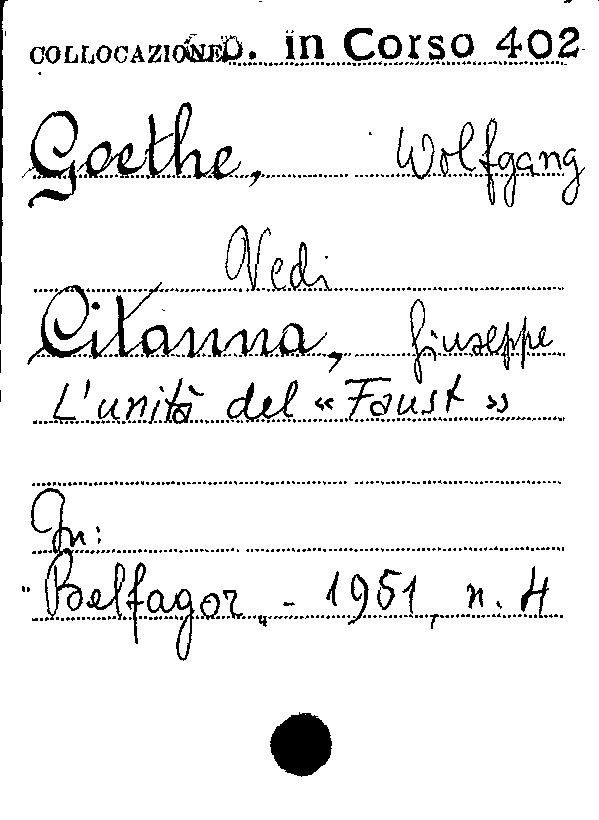 COLLOCAZIONE D. in Corso 402
Goethe, Wolfgang
Vedi
Citanna, Giuseppe
L'unità del « Faust »
In:
"Belfagor„ - 1951, n. 4